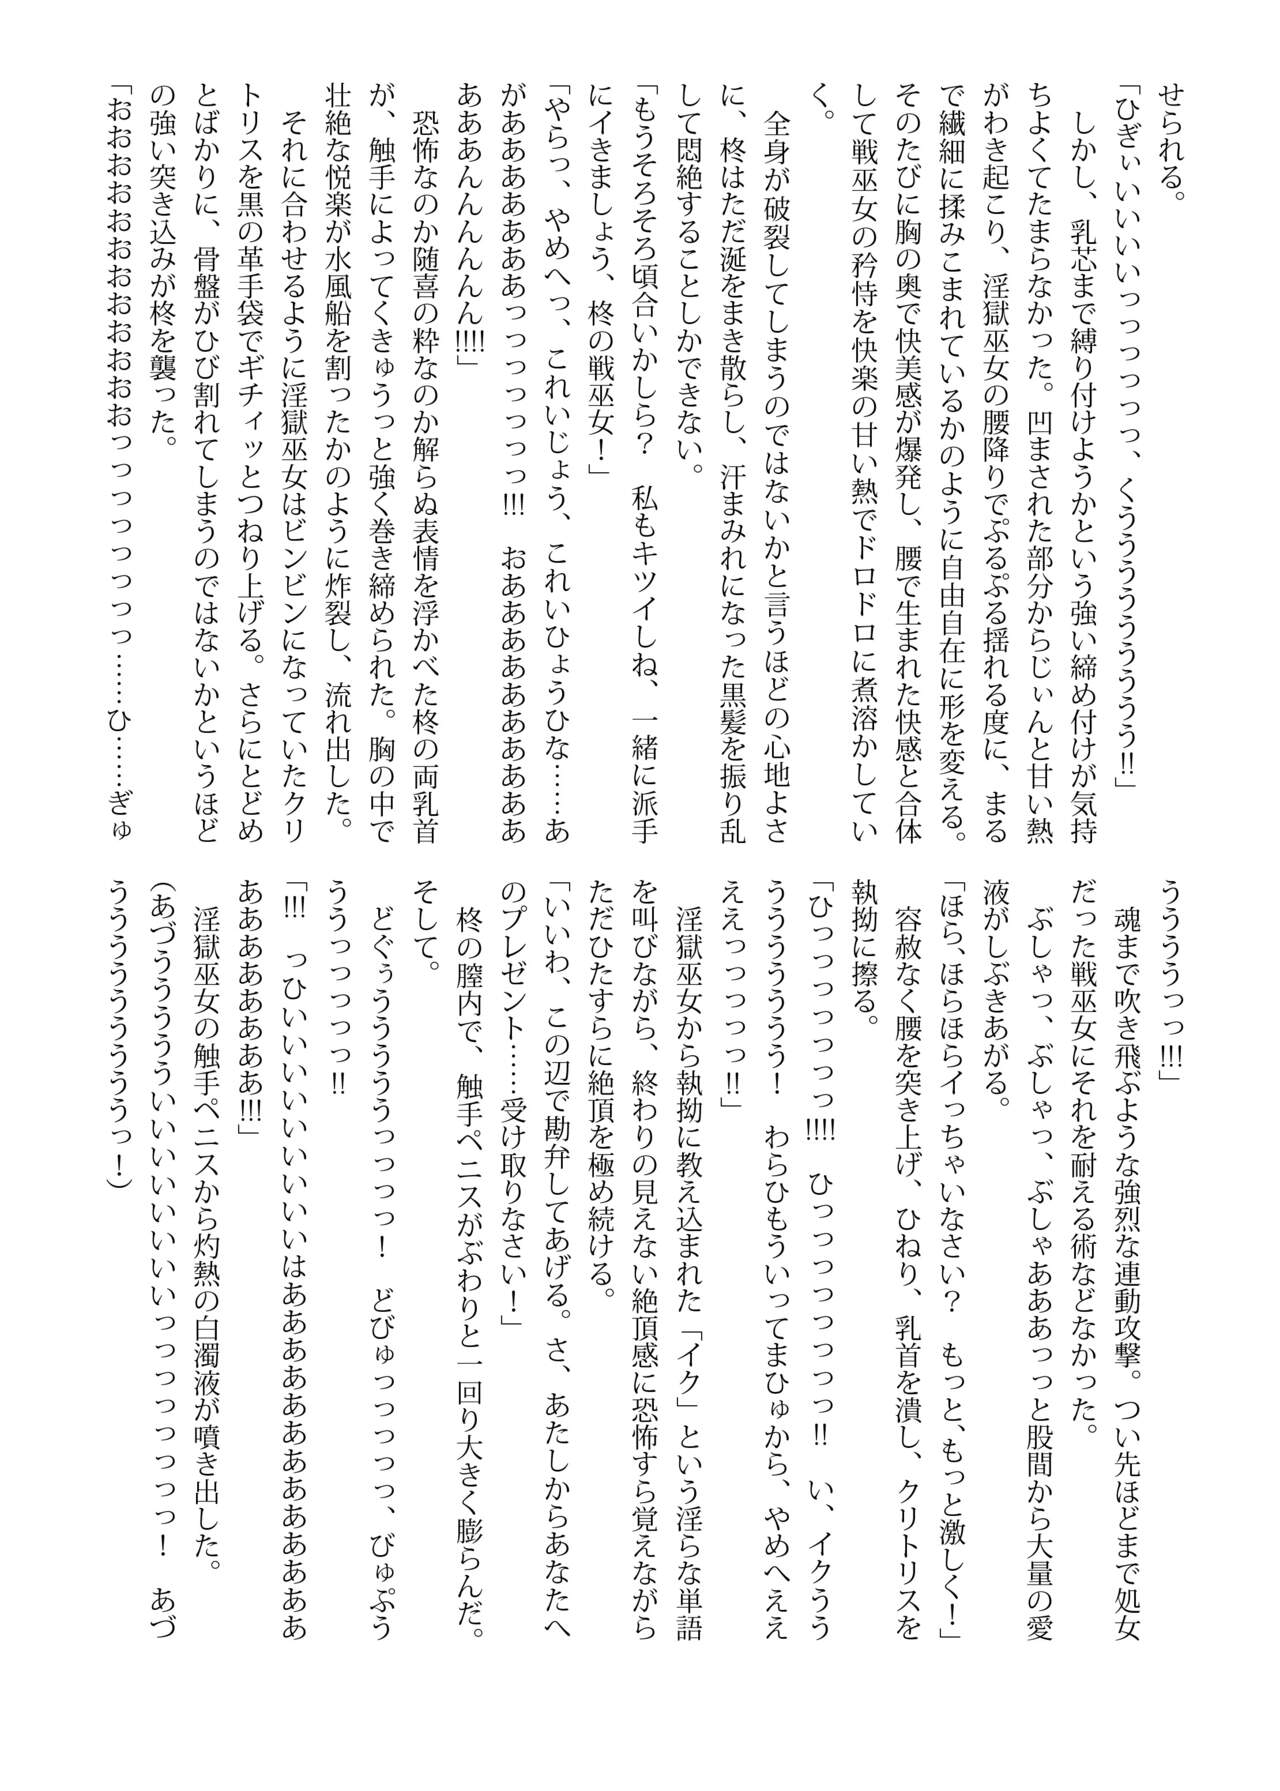 せられる。
「ひぎぃいいいいっっっっっっ、くううううううううう!!」
　しかし、乳芯まで縛り付けようかという強い締め付けが気持
ちよくてたまらなかった。凹まされた部分からじぃんと甘い熱
がわき起こり、淫獄巫女の腰降りでぷるぷる揺れる度に、まる
で繊細に揉みこまれているかのように自由自在に形を変える。
そのたびに胸の奥で快美感が爆発し、腰で生まれた快感と合体
して戦巫女の矜恃を快楽の甘い熱でドロドロに煮溶かしてい
く。
　全身が破裂してしまうのではないかと言うほどの心地よさ
に、柊はただ涎をまき散らし、汗まみれになった黒髪を振り乱
して悶絶することしかできない。
「もうそろそろ頃合いかしら?　私もキツイしね、一緒に派手
にイきましょう、柊の戦巫女!」
「やらっ、やめへっ、これいじょう、これいひょうひな……あ
がああああああああっっっっっっっ!!!　おああああああああああ
あああんんんんんん!!!!」
　恐怖なのか随喜の粋なのか解らぬ表情を浮かべた柊の両乳首
が、触手によってくきゅうっと強く巻き締められた。胸の中で
壮絶な悦楽が水風船を割ったかのように炸裂し、流れ出した。
　それに合わせるように淫獄巫女はビンビンになっていたクリ
トリスを黒の革手袋でギチィッとつねり上げる。さらにとどめ
とばかりに、骨盤がひび割れてしまうのではないかというほど
の強い突き込みが柊を襲った。
「おおおおおおおおおおおおおっっっっっっっっ……ひ……ぎゅ
ううううっっ!!!」
　魂まで吹き飛ぶような強烈な連動攻撃。つい先ほどまで処女
だった戦巫女にそれを耐える術などなかった。
　ぶしゃっ、ぶしゃっ、ぶしゃあああっっと股間から大量の愛
液がしぶきあがる。
「ほら、ほらほらイっちゃいなさい?　もっと、もっと激しく!」
　容赦なく腰を突き上げ、ひねり、乳首を潰し、クリトリスを
執拗に擦る。
「ひっっっっっっっ!!!!　ひっっっっっっっっ!!　い、イクうう
うううううう!　わらひもういってまひゅから、やめへええ
ええっっっっっ!!」
　淫獄巫女から執拗に教え込まれた「イク」という淫らな単語
を叫びながら、終わりの見えない絶頂感に恐怖すら覚えながら
ただひたすらに絶頂を極め続ける。
「いいわ、この辺で勘弁してあげる。さ、あたしからあなたへ
のプレゼント……受け取りなさい!」
　柊の膣内で、触手ペニスがぶわりと一回り大きく膨らんだ。
そして。
　どぐぅうううううっっっっ!　どびゅっっっっっ、びゅぷう
ううっっっっっ!!
「!!!　っひいいいいいいいいいはあああああああああああああ
ああああああああ!!!」
　淫獄巫女の触手ペニスから灼熱の白濁液が噴き出した。
(あづううううういいいいいいいいいっっっっっっっ!　あづ
うううううううううっ!)